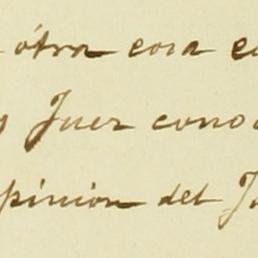 ótra cosa
Juez cono
pinion del